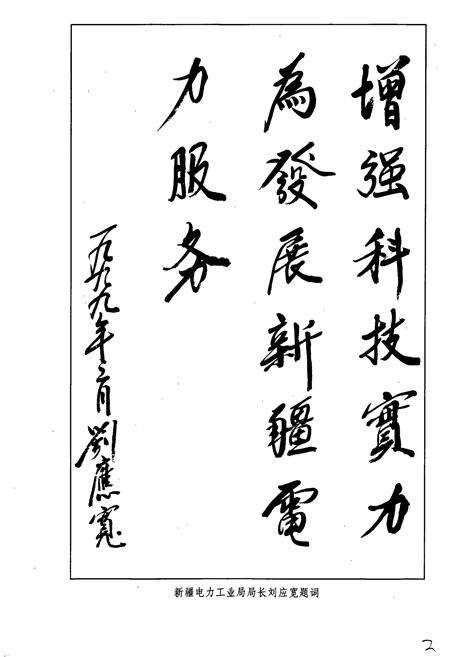 增强科技實力
為發展新疆電
力服务
一九九九年二月 劉應寬
新疆电力工业局局长刘应宽题词
2